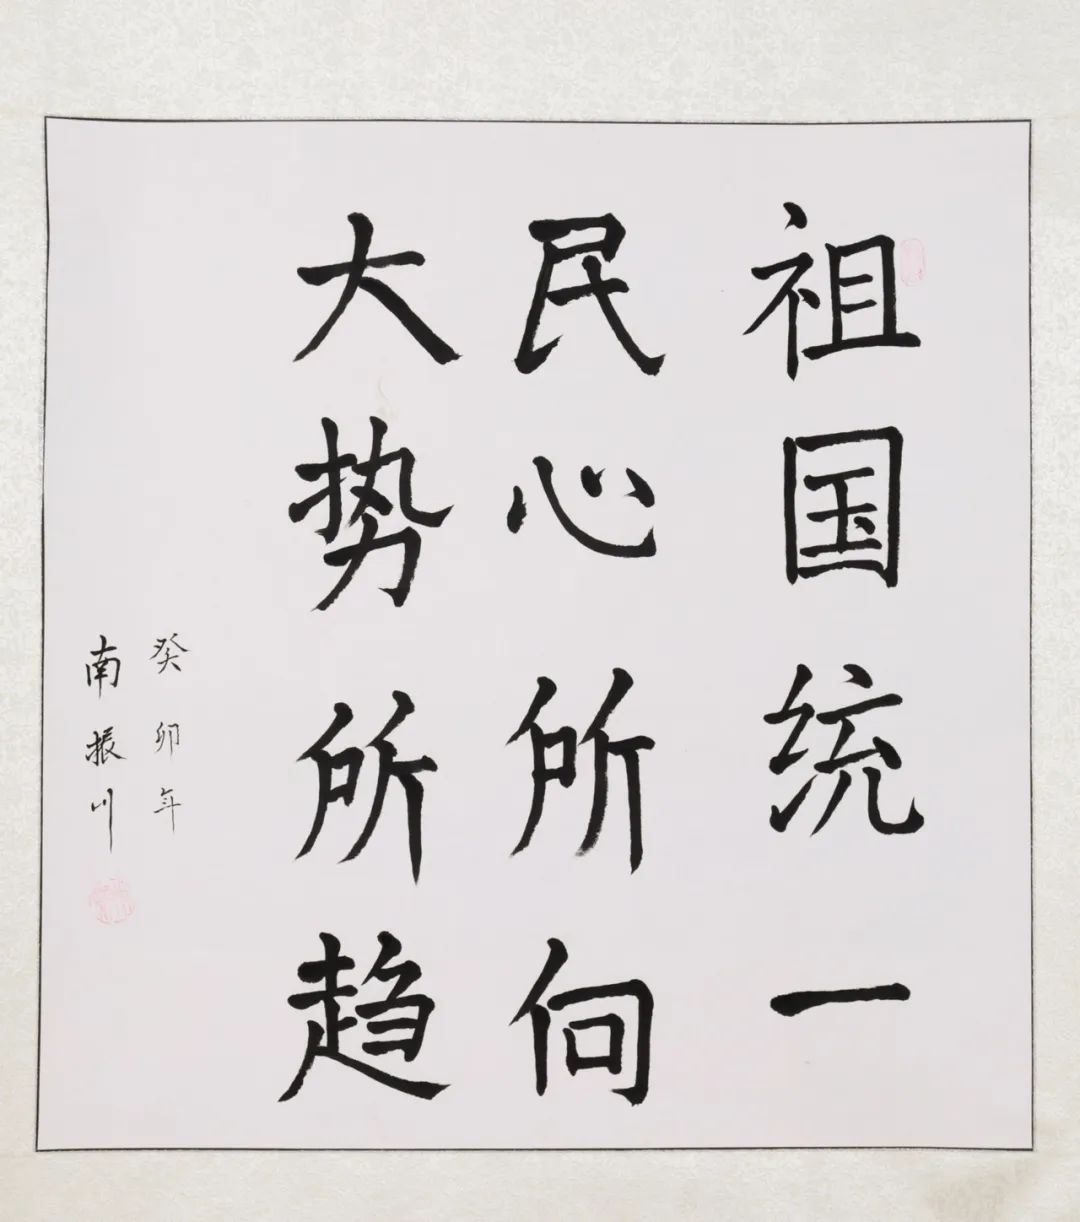 祖国统一
民心所向
大势所趋
癸卯年
南振川